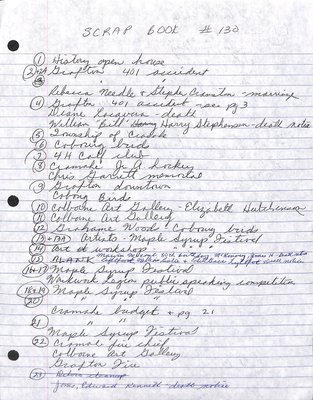 SCRAP BOOK # 130
1 History open house
2 Grafton 401 accident
3 " " "
Rebecca Needle & Stephe Cranston - marriage
4 Grafton 401 accident - see pg 3
Diane - death
William "Bill" Henry Harry Stephenson - death notice
5 Township of Cramahe
6 Cobourg birds
7 4H Calf club
8 Cramahe Jr. A hockey
Chris Garrett memorial
9 Grafton downtown
Cobourg Birds
10 Colborne Art Gallery - Elizabeth Hutchinson
11 Colborne Art Gallery
12 Grahame Woods Cobourg birds
13 + 13A Artists - Maple Syrup Festival
14 Art at workshop
15 BLANK
16+17 Maple Syrup Festival
Warkworth Legion public speaking competition
18+19 Maple Syrup Festival
20 " " "
Cramahe budget + pg 21
21 " "
Maple Syrup Festival
22 Cramahe fire chief
Colborne Art Gallery
Grafton Fire
23
Jones, Edward Kenneth death notice